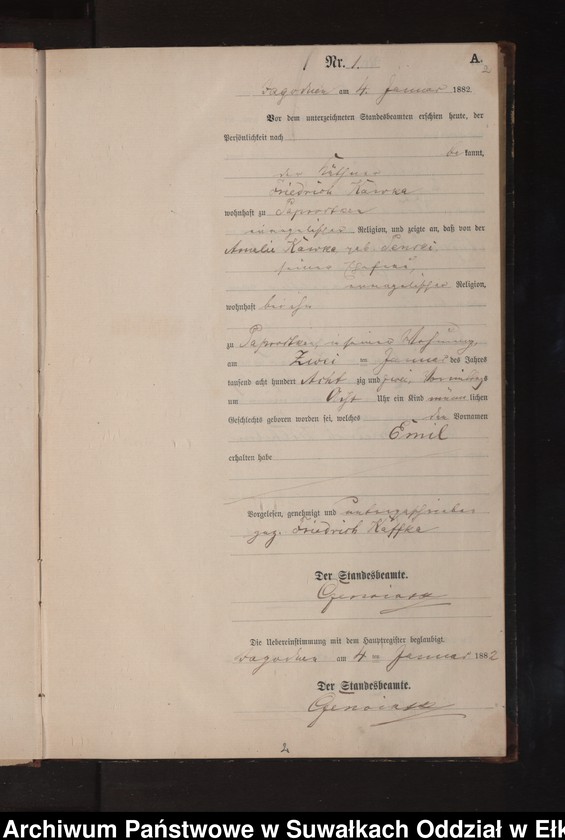 Nr. 1.
A.
2
am 4. Januar 1882.
Vor dem unterzeichneten Standesbeamten erschien heute, der
Persönlichkeit nach
be kannt,
der Käthner
Friedrich Kawka
wohnhaft zu Paprodtken
evangelischer Religion, und zeigte an, daß von der
Amalie Kawka geb.
seiner Ehefrau,
evangelischer Religion,
wohnhaft bei ihm
zu Paprodtken, in seiner Wohnung
am Zwei ten Januar des Jahres
tausend acht hundert Acht zig und zwei, Vormittags
um Acht Uhr ein Kind männ lichen
Geschlechts geboren worden sei, welches den Vornamen
Emil
erhalten habe
Vorgelesen, genehmigt und unterschrieben
gez. Friedrich Kaffka
Der Standesbeamte.
Die Uebereinstimmung mit dem Hauptregister beglaubigt.
am 4 ten Januar 1882
Der Standesbeamte.
2
Archiwum Państwowe w Suwałkach Oddział w Ełk